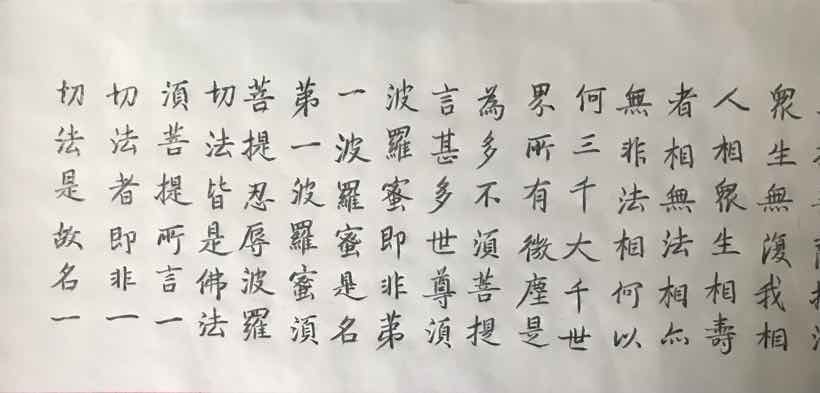 眾生無復我相
人相眾生相壽
者相無法相亦
無非法相何以
何三千大千世
界所有微塵是
為多不須菩提
言甚多世尊須
波羅蜜即非第
一波羅蜜是名
第一波羅蜜須
菩提忍辱波羅
切法皆是佛法
須菩提所言一
切法者即非一
切法是故名一